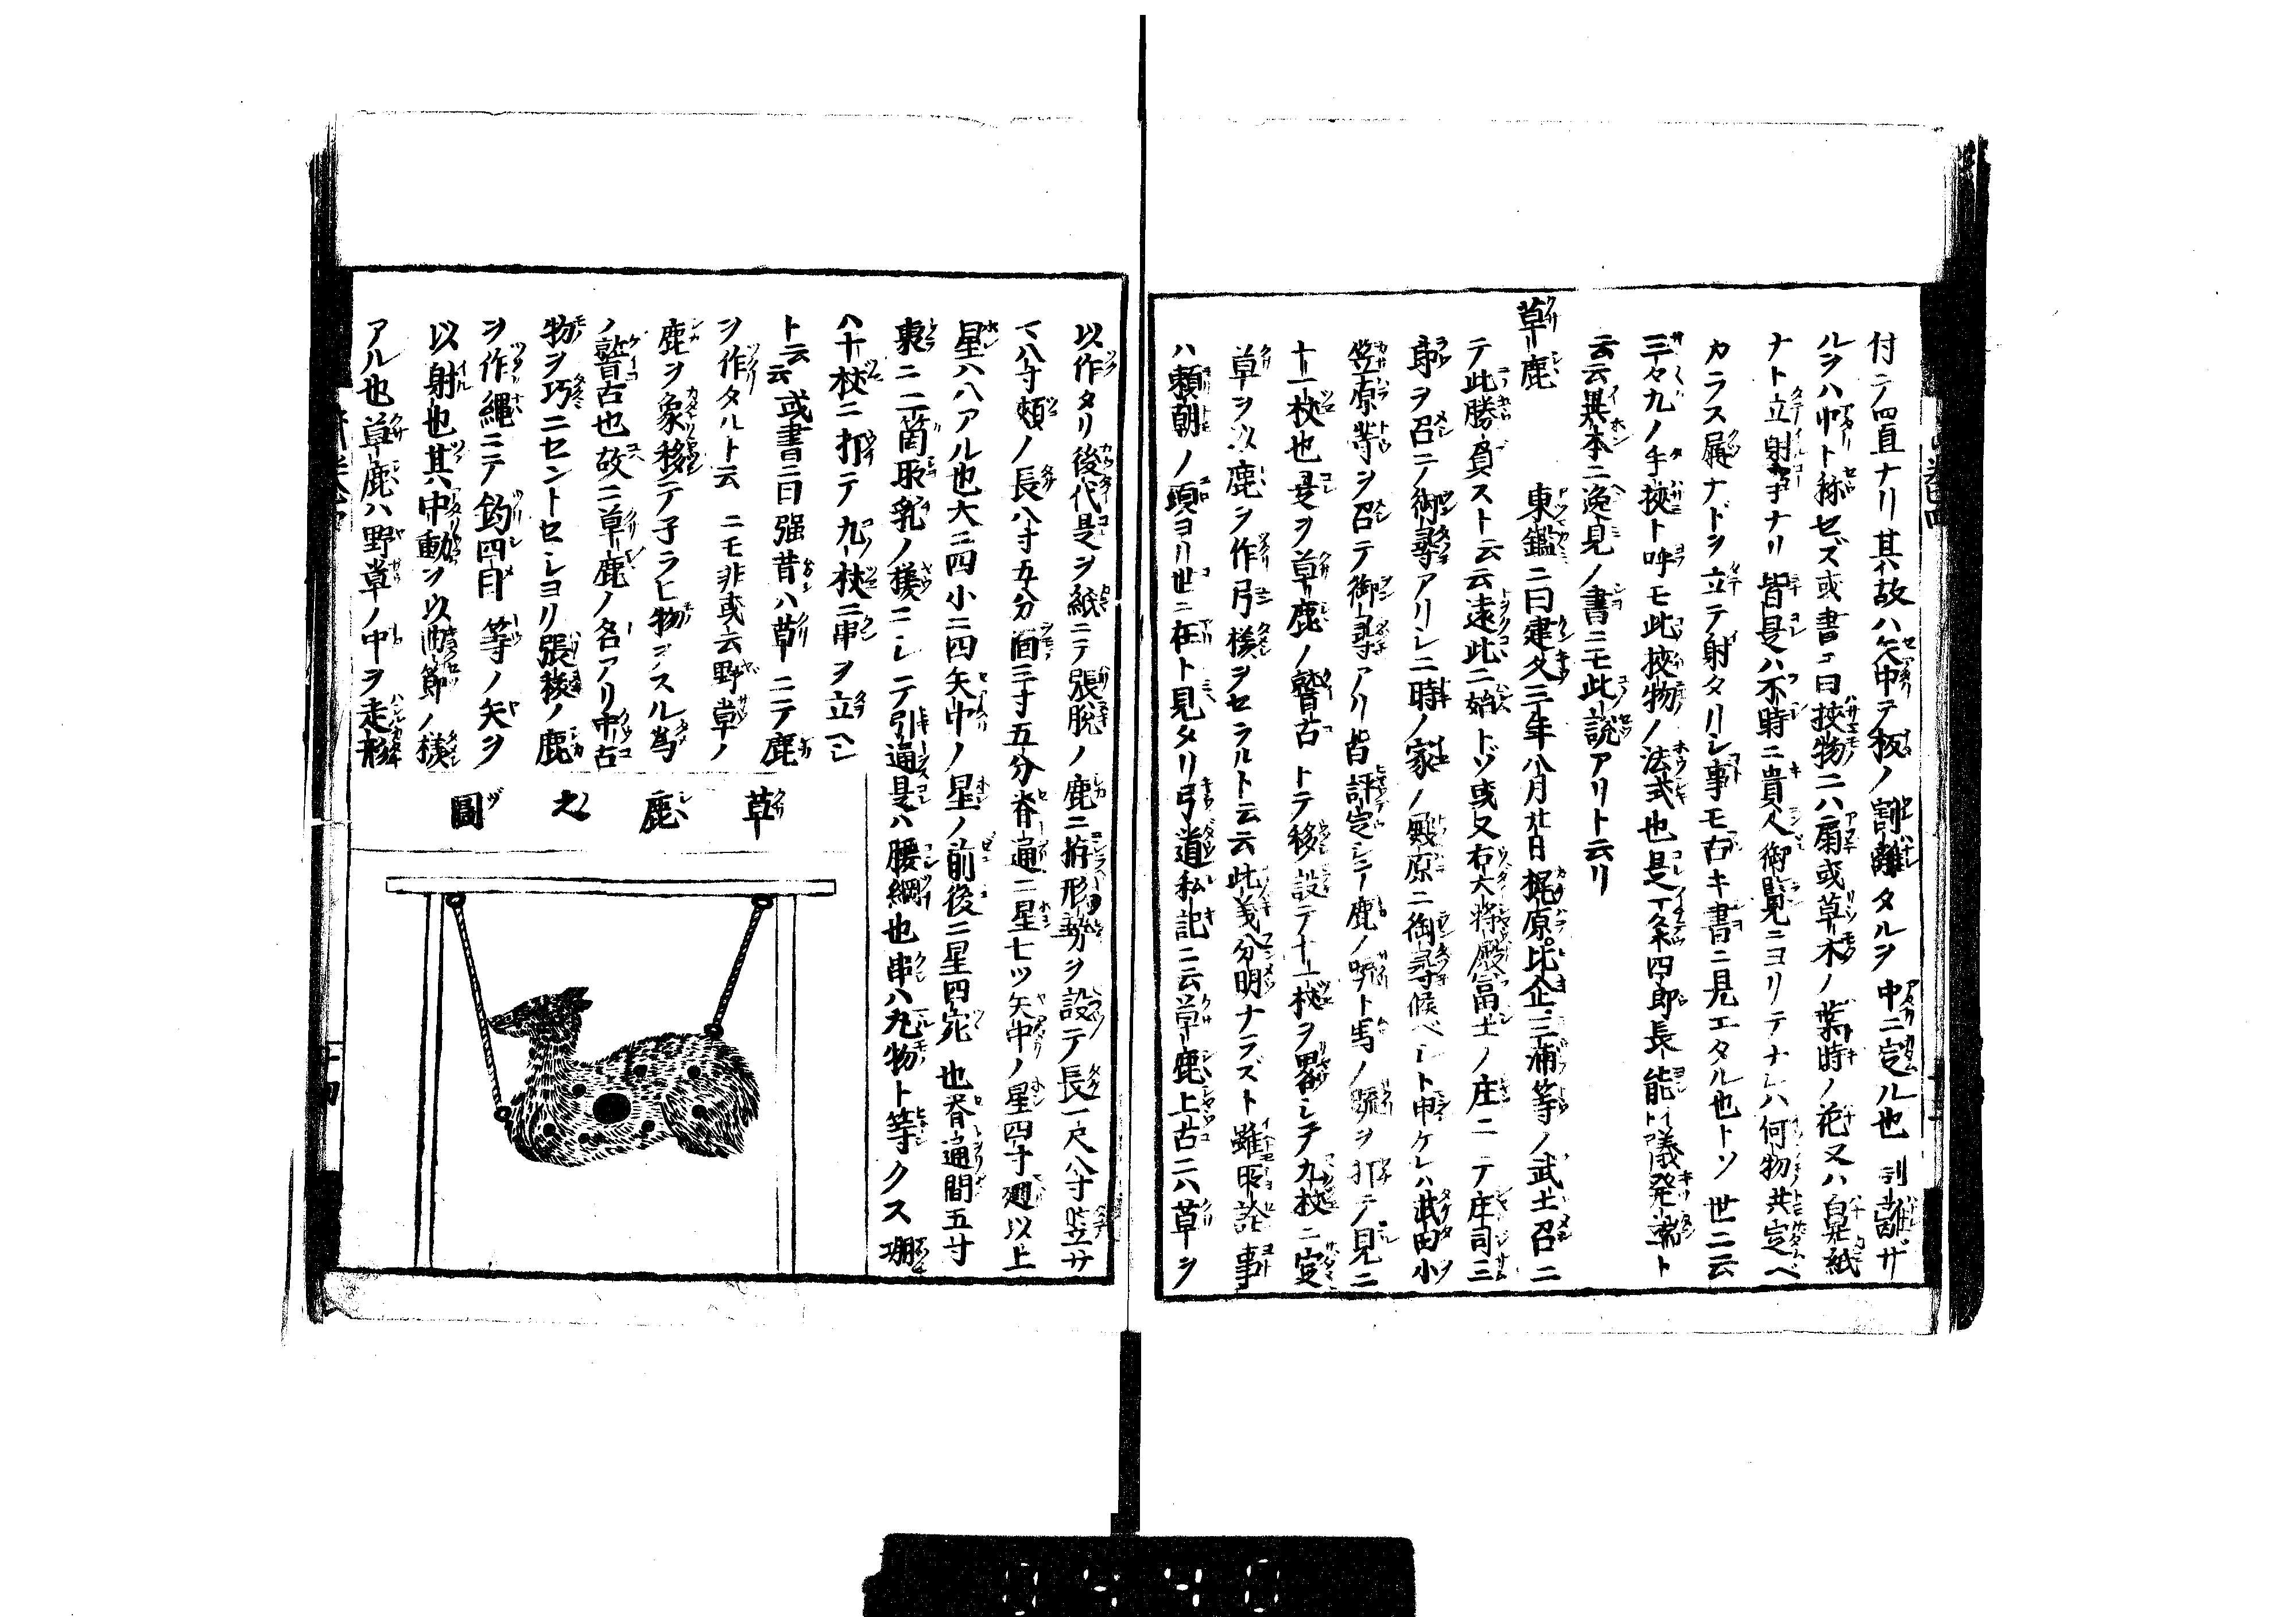 付テ四直ナリ其故ハ矢中テ板ノ割離タルヲ中ニ定ル也割離ザ
ルヲハ中ト称セズ或書ニ曰挟物ニハ扇或草木ノ葉時ノ花又ハ白紙
ナト立射事ナリ皆是ハ不時ニ貴人御覧ニヨリテナレハ何物共定ベ
カラス属ナドヲ立テ射タリシ事モ古キ書ニ見エタル也トソ世ニ云
三々九ノ手挟ト呼モ此挟物ノ法式也是一条四郎長能ト議発端ト
云云異本ニ逸見ノ書ニモ此説アリト云リ
草鹿
東鑑ニ曰建久三年八月廿日梶原比企三浦等ノ武士召ニ
テ此勝負スト云云遠此ニ始トゾ或又右大将殿冨士ノ庄ニテ庄司三
郎ヲ召ニテ御尋アリシニ時ノ家ノ殿原ニ御尋候ベシト申ケレハ武田小
笠原等ヲ召テ御尋アリ皆評定シニ鹿ノ ト馬ノ ヲ打テ見ニ
十一杖也是ヲ草鹿ノ稽古トテ移設テ十一杖ヲ畧シテ九杖ニ定
草ヲ以鹿ヲ作弓様ヲセラルト云云此義分明ナラズト雖 證事
ハ頼朝ノ頃ヨリ世ニ在ト見タリ弓道私記ニ云草鹿上古ニハ草ヲ
以作タリ後代是ヲ紙ニテ張脱ノ鹿ニ 形勢ヲ設テ長一尺八寸 サ
八寸頬ノ長八寸五分面三寸五分脊通ニ星七ツ矢中ノ星四寸廻以上
星六八アル也大ニ四小ニ四矢中ノ星ノ前後ニ星四宛也脊通間五寸
裏ニ二箇取乳ノ様ニシテ引通是ハ腰綱也串ハ丸物ト等クス堋
ハ十杖ニ打テ九ツ杖ニ串ヲ立ヘシ
ト云云或書ニ曰强昔ハ草ニテ鹿
ヲ作タルト云ニモ非或云野草ノ
鹿ヲ象移テ子ラヒ物ヲスル為
ノ稽古也故ニ草鹿ノ名アリ中古
物ヲ巧ニセントセシヨリ張裬ノ鹿
ヲ作縄ニテ釣四目等ノ矢ヲ
以射也其中動ヲ以 節ノ様
アル也草鹿ハ野草ノ中ヲ走形
草鹿之圖